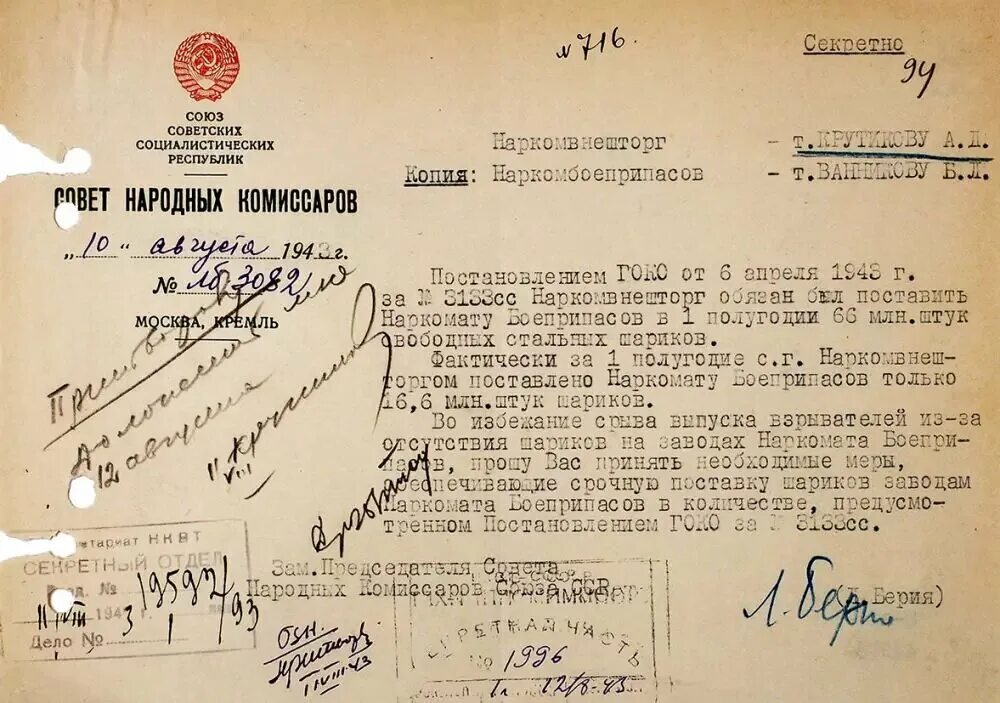 №716.
Секретно
94
СОЮЗ
СОВЕТСКИХ
СОЦИАЛИСТИЧЕСКИХ
РЕСПУБЛИК
СОВЕТ НАРОДНЫХ КОМИССАРОВ
„10“ августа 1943 г.
№ ЛБ 3082
МОСКВА, КРЕМЛЬ
Наркомвнешторг - т.КРУТИКОВУ А.Д.
Копия: Наркомбоеприпасов - т.ВАННИКОВУ Б.Л.
Постановлением ГОКО от 6 апреля 1943 г.
за № 3133сс Наркомвнешторг обязан был поставить
Наркомату Боеприпасов в 1 полугодии 66 млн.штук
свободных стальных шариков.
Фактически за 1 полугодие с.г. Наркомвнеш-
торгом поставлено Наркомату Боеприпасов только
16,6 млн.штук шариков.
Во избежание срыва выпуска взрывателей из-за
отсутствия шариков на заводах Наркомата Боепри-
пасов, прошу Вас принять необходимые меры,
обеспечивающие срочную поставку шариков заводам
Наркомата Боеприпасов в количестве, предусмо-
тренном Постановлением ГОКО за № 3133сс.
12 августа
Зам.Председателя Совета
Народных Комиссаров Союза ССР
Л.Берия
(Л.Берия)
Секретариат НКВТ
СЕКРЕТНЫЙ ОТДЕЛ
Вход. №
11/VIII 194 г.
Дело №
СЕКРЕТНАЯ ЧАСТЬ
№ 1996
12/8-43